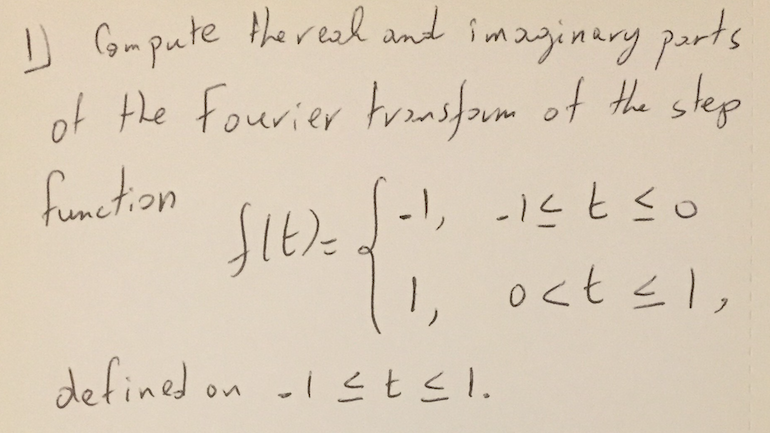 1) Compute the real and imaginary parts
of the Fourier transform of the step
function f(t) = { -1, -1 ≤ t ≤ 0
1, 0 < t ≤ 1,
defined on -1 ≤ t ≤ 1.